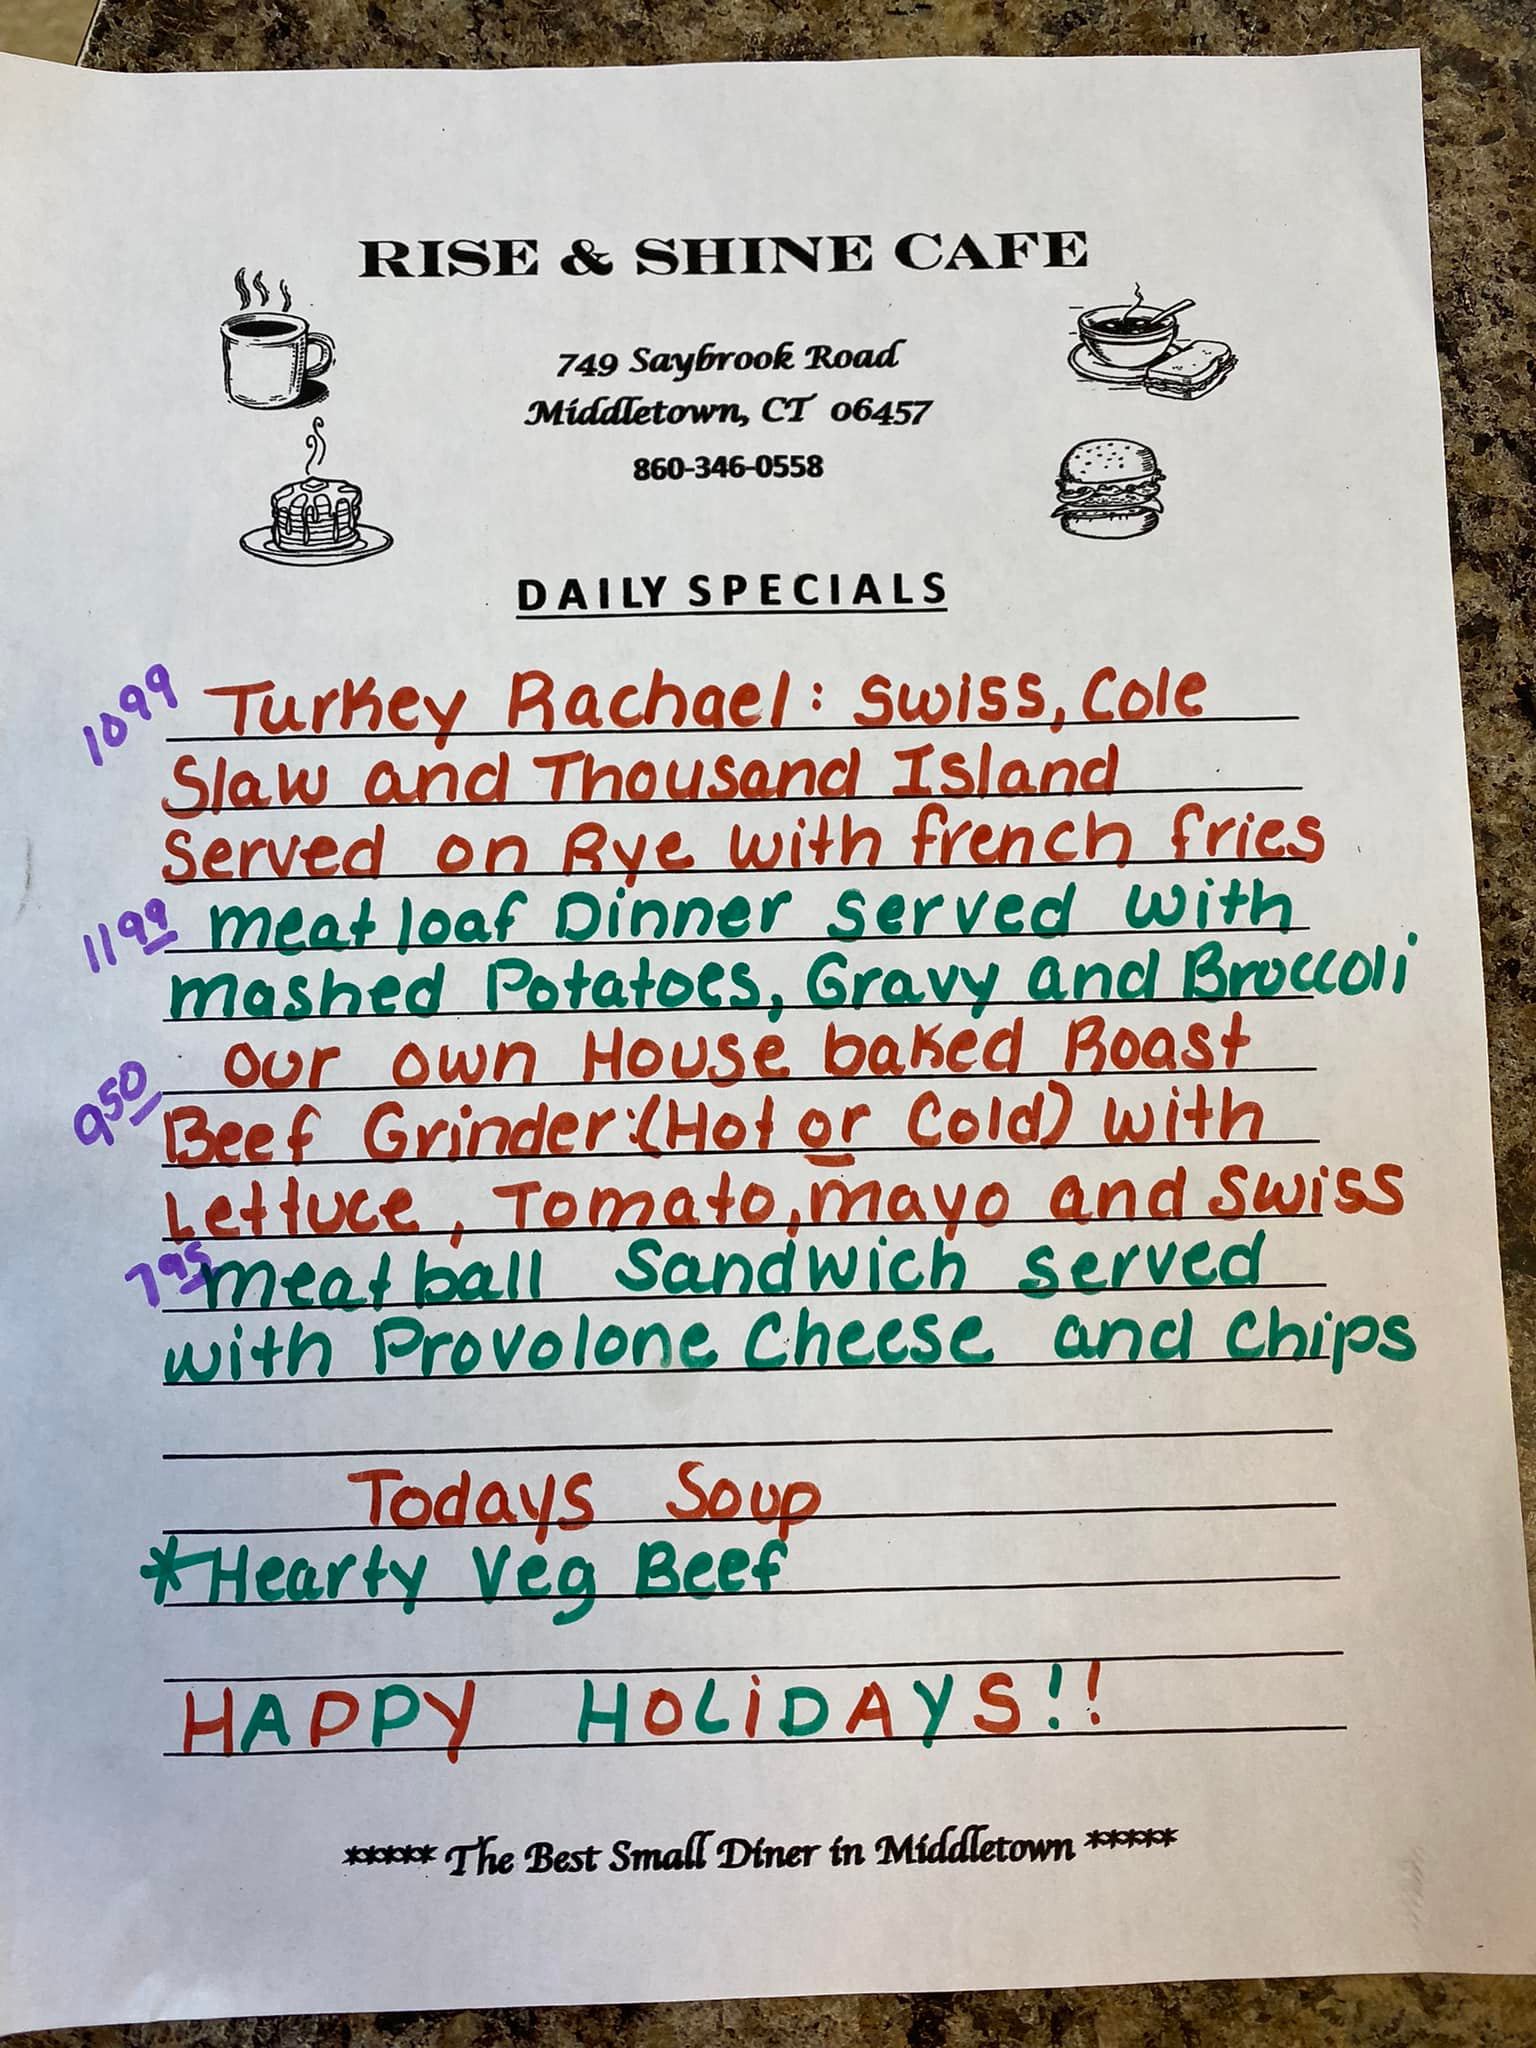 RISE & SHINE CAFE
749 Saybrook Road
Middletown, CT 06457
860-346-0558
DAILY SPECIALS
1099 Turkey Rachael: Swiss, Cole
Slaw and Thousand Island
Served on Rye with french fries
1199 meatloaf Dinner served with
mashed Potatoes, Gravy and Broccoli
950 our own House baked Roast
Beef Grinder:(Hot or Cold) with
Lettuce, Tomato, mayo and Swiss
795 meatball Sandwich served
with Provolone Cheese and Chips
Todays Soup
*Hearty Veg Beef
HAPPY HOLiDAYS!!
***** The Best Small Diner in Middletown *****